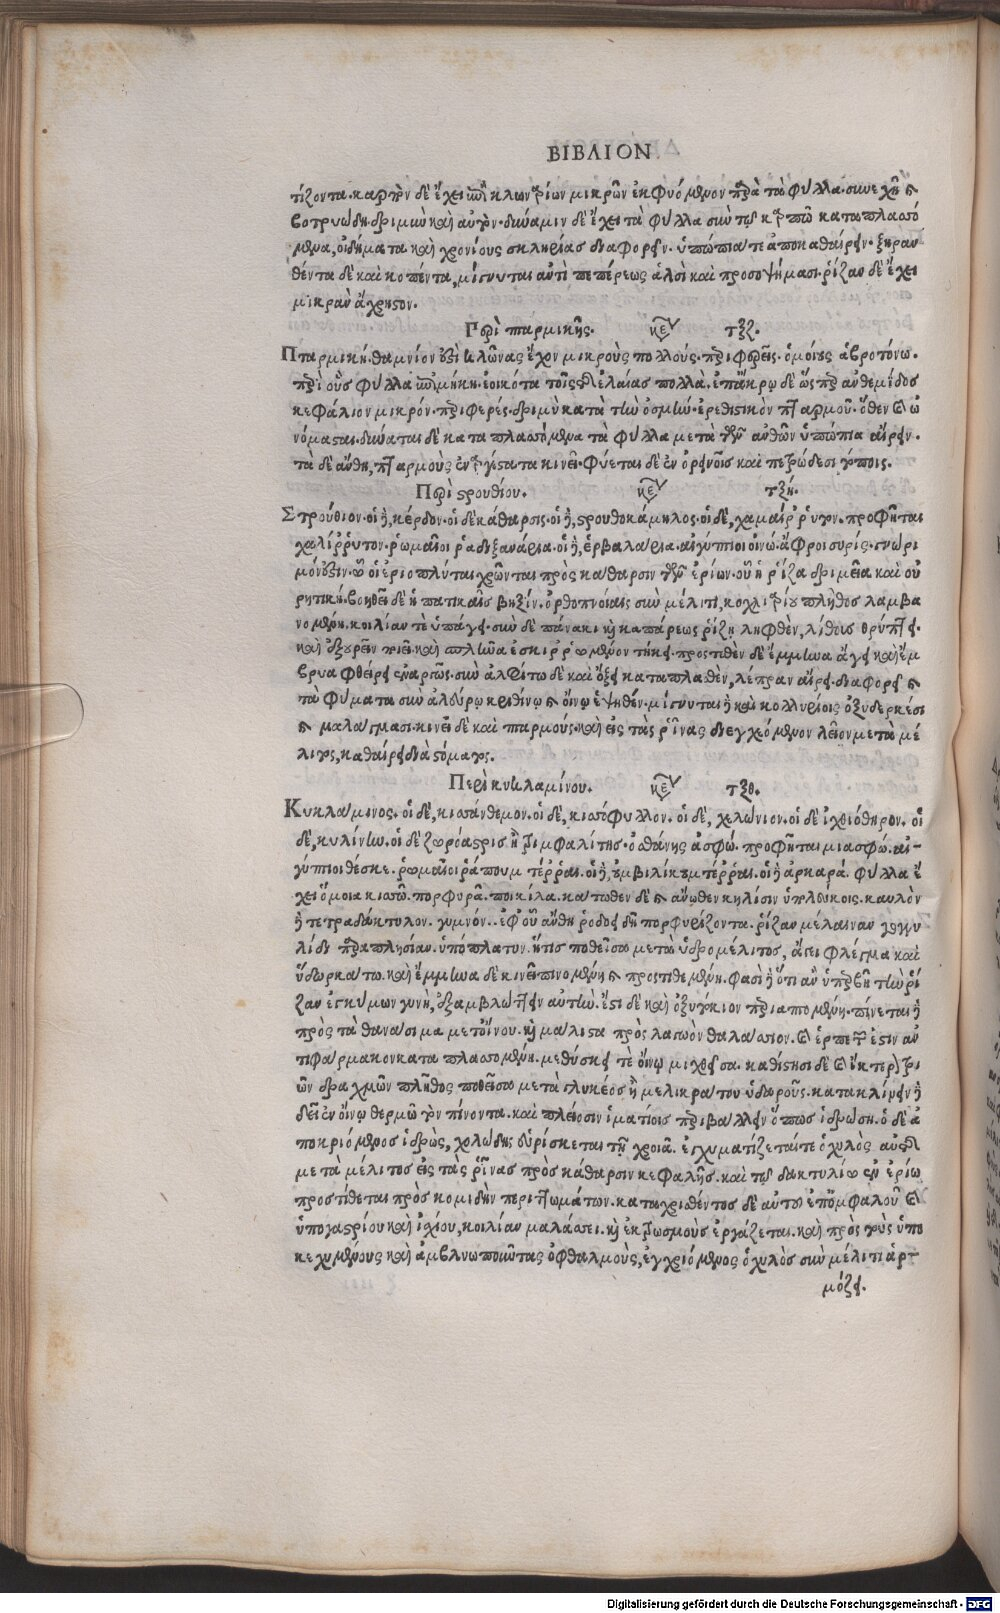 ΒΙΒΛΙΟΝ
τίζοντα. καρπὸν δὲ ἔχει ἐπὶ κλωνίων μικρῶν ἐκφυόμενον παρὰ τὰ φύλλα. συνεχῆ καὶ
βοτρυώδη. δριμὺν καὶ αὐτόν. δύναμιν δὲ ἔχει τὰ φύλλα σὺν τῷ καρπῷ καταπλασσό
μενα, οἰδήματα καὶ χρονίους σκληρίας διαφορεῖν. ὑπώπιά τε ἀποκαθαίρειν. ξηραν
θέντα δὲ καὶ κοπέντα, μίγνυται ἀντὶ πεπέρεως ἁλσὶ καὶ προσοψήμασι. ῥίζαν δὲ ἔχει
μικρὰν ἄχρηστον.
Περὶ πταρμικῆς. κεφ τξζ.
Πταρμικὴ. θαμνίον ἐστὶ κλῶνας ἔχον μικροὺς πολλούς. περιφερεῖς. ὁμοίους ἀβροτόνῳ.
περὶ οὓς φύλλα ἐπιμήκη. ἐοικότα τοῖς τῆς ἐλαίας πολλὰ. ἐπ' ἄκρῳ δὲ ὥσπερ ἀνθεμίδος
κεφάλιον μικρόν. περιφερές. δριμὺ κατὰ τὴν ὀσμήν. ἐρεθιστικὸν πταρμοῦ. ὅθεν καὶ ὠ
νόμασται. δύναται δὲ καταπλασσόμενα τὰ φύλλα μετὰ τῶν ἀνθῶν ὑπώπια αἴρειν.
τὰ δὲ ἄνθη, πταρμοὺς ἐναργέστατα κινεῖ. φύεται δὲ ἐν ὀρεινοῖς καὶ πετρώδεσι τόποις.
Περὶ στρουθίου. κεφ τξή.
Στρούθιον. οἱ δὲ, κέρδον. οἱ δὲ κάθαρσις. οἱ δὲ, στρουθοκάμηλος. οἱ δὲ, χαμαίρρυτον. προφῆται
χαλίρρυτον. ῥωμαῖοι ῥάδιξ λανάρια. οἱ δὲ, ἑρβαλάρια. αἰγύπτιοι οἰνώ. ἄφροι συρίς. γνώρι
μόν ἐστιν. ᾧ οἱ ἐριοπλύται χρῶνται πρὸς κάθαρσιν τῶν ἐρίων. οὗ ἡ ῥίζα δριμεῖα καὶ οὐ
ρητική. βοηθεῖ δὲ ἡπατικαῖς βηξίν. ὀρθοπνοίαις σὺν μέλιτι, κοχλιαρίου πλῆθος λαμβα
νομένη. κοιλίαν τὲ ὑπάγει. σὺν δὲ πάνακι καὶ καπάρεως ῥίζῃ ληφθὲν, λίθους θρύπτει.
καὶ ἐξουρεῖν ποιεῖ. καὶ σπλῆνα ἐσκιρρωμένον τήκει. προστεθὲν δὲ ἔμμηνα ἄγει καὶ ἔμ
βρυα φθείρει ἐναργῶς. σὺν ἀλφίτῳ δὲ καὶ ὄξει καταπλασθὲν, λέπραν αἴρει. διαφορεῖ καὶ
τὰ φύματα σὺν ἀλεύρῳ κριθίνῳ καὶ οἴνῳ ἑψηθέν. μίγνυται δὲ καὶ κολλυρίοις ὀξυδερκέσι
καὶ μαλάγμασι. κινεῖ δὲ καὶ πταρμούς. καὶ εἰς τὰς ῥῖνας δὲ ἐγχεόμενον λεῖον μετὰ μέ
λιτος, καθαίρει διὰ στόματος.
Περὶ κυκλαμίνου. κεφ τξθ.
Κυκλάμινος. οἱ δὲ, κισσάνθεμον. οἱ δὲ, κισσόφυλλον. οἱ δὲ, χελώνιον. οἱ δὲ ἰχθυόθηρον. οἱ
δὲ, κυλίνην. οἱ δὲ ζωρόαστρις ἢ ϳιμφαλίτης. ὀσθάνης ἀσφώ. προφῆται μιασφώ. αἰ-
γύπτιοι θέσκε. ῥωμαῖοι ῥάπουμ τέρραι. οἱ δὲ, ὑμβιλίκουμ τέρραι. οἱ δὲ ἀρκαρά. φύλλα ἔ
χει ὅμοια κισσῷ. πορφυρᾶ. ποικίλα. κάτωθεν δὲ καὶ ἄνωθεν κηλίσιν ὑπολεύκοις. καυλὸν
δὲ τετραδάκτυλον. γυμνόν. ἐφ' οὗ ἄνθη ῥοδοειδῆ πορφυρίζοντα. ῥίζαν μέλαιναν γογγυ
λίδι παραπλησίαν. ὑπόπλατυν. ἥτις ποθεῖσα μετὰ ὑδρομέλιτος, ἄγει φλέγμα καὶ
ὕδωρ κάτω. καὶ ἔμμηνα δὲ κινεῖ πινομένη καὶ προστιθεμένη. φασὶ δὲ ὅτι ἂν ὑπερβῇ τὴν ῥί
ζαν ἐγκύμων γυνὴ, ἐξαμβλώττειν αὐτήν. ἔστι δὲ καὶ ὀξυτόκιον περιαπτομένη. πίνεται δὲ
πρὸς τὰ θανάσιμα μετ' οἴνου. καὶ μάλιστα πρὸς λαγωὸν θαλάσσιον. καὶ ἑρπετῶν ἐστὶν ἀν
τιφάρμακον καταπλασσομένη. μεθύσκει τὲ οἴνῳ μιχθεῖσα. καθίστησι δὲ καὶ ἴκτερον τρι
ῶν δραχμῶν πλῆθος ποθεῖσα μετὰ γλυκέος ἢ μελικράτου ὑδαροῦς. κατακλίνειν δὲ
δεῖ ἐν οἴνῳ θερμῷ τὸν πίνοντα. καὶ πλείοσιν ἱματίοις περιβάλλειν ὅπως ἱδρώσῃ. ὁ δὲ ἀ
ποκριόμενος ἱδρὼς, χολώδης εὑρίσκεται τῇ χροιᾷ. ἐγχυματίζεταί τε ὁ χυλὸς αὐτῆς
μετὰ μέλιτος εἰς τὰς ῥῖνας πρὸς κάθαρσιν κεφαλῆς. καὶ τῷ δακτυλίῳ ἐν ἐρίῳ
προστίθεται πρὸς κομιδὴν περιττωμάτων. καταχρισθέντος δὲ αὐτοῦ ἐπ' ὀμφαλοῦ καὶ
ὑπογαστρίου καὶ ἰσχίου, κοιλίαν μαλάσσει. καὶ ἐκτρωσμοὺς ἐργάζεται. καὶ πρὸς τοὺς ὑπο
κεχυμένους καὶ ἀμβλυωποῦντας ὀφθαλμοὺς, ἐγχριόμενος ὁ χυλὸς σὺν μέλιτι ἁρ-
μόζει.
Digitalisierung gefördert durch die Deutsche Forschungsgemeinschaft - DFG